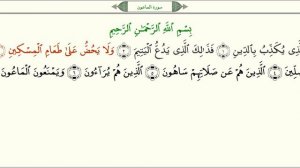 سورة الماعون
بِسْمِ اللَّهِ الرَّحْمَٰنِ الرَّحِيمِ
ذِى يُكَذِّبُ بِالدِّينِ ۝١ فَذَٰلِكَ الَّذِى يَدُعُّ الْيَتِيمَ ۝٢ وَلَا يَحُضُّ عَلَىٰ طَعَامِ الْمِسْكِينِ ۝٣
صَلِّينَ ۝٤ الَّذِينَ هُمْ عَن صَلَاتِهِمْ سَاهُونَ ۝٥ الَّذِينَ هُمْ يُرَاءُونَ ۝٦ وَيَمْنَعُونَ الْمَاعُونَ